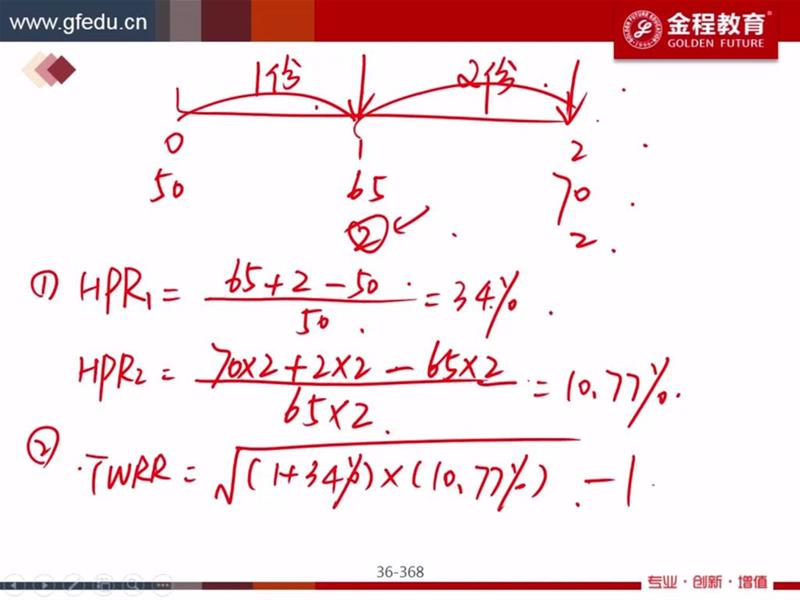 www.gfedu.cn
金程教育®
GOLDEN FUTURE
1份 2份
0 1 2
50 65 70
② 2
① HPR₁ = (65+2-50)/50 = 34%
HPR₂ = (70×2+2×2-65×2)/(65×2) = 10.77%
② TWRR = √(1+34%)×(10.77%) - 1
36-368
专业·创新·增值